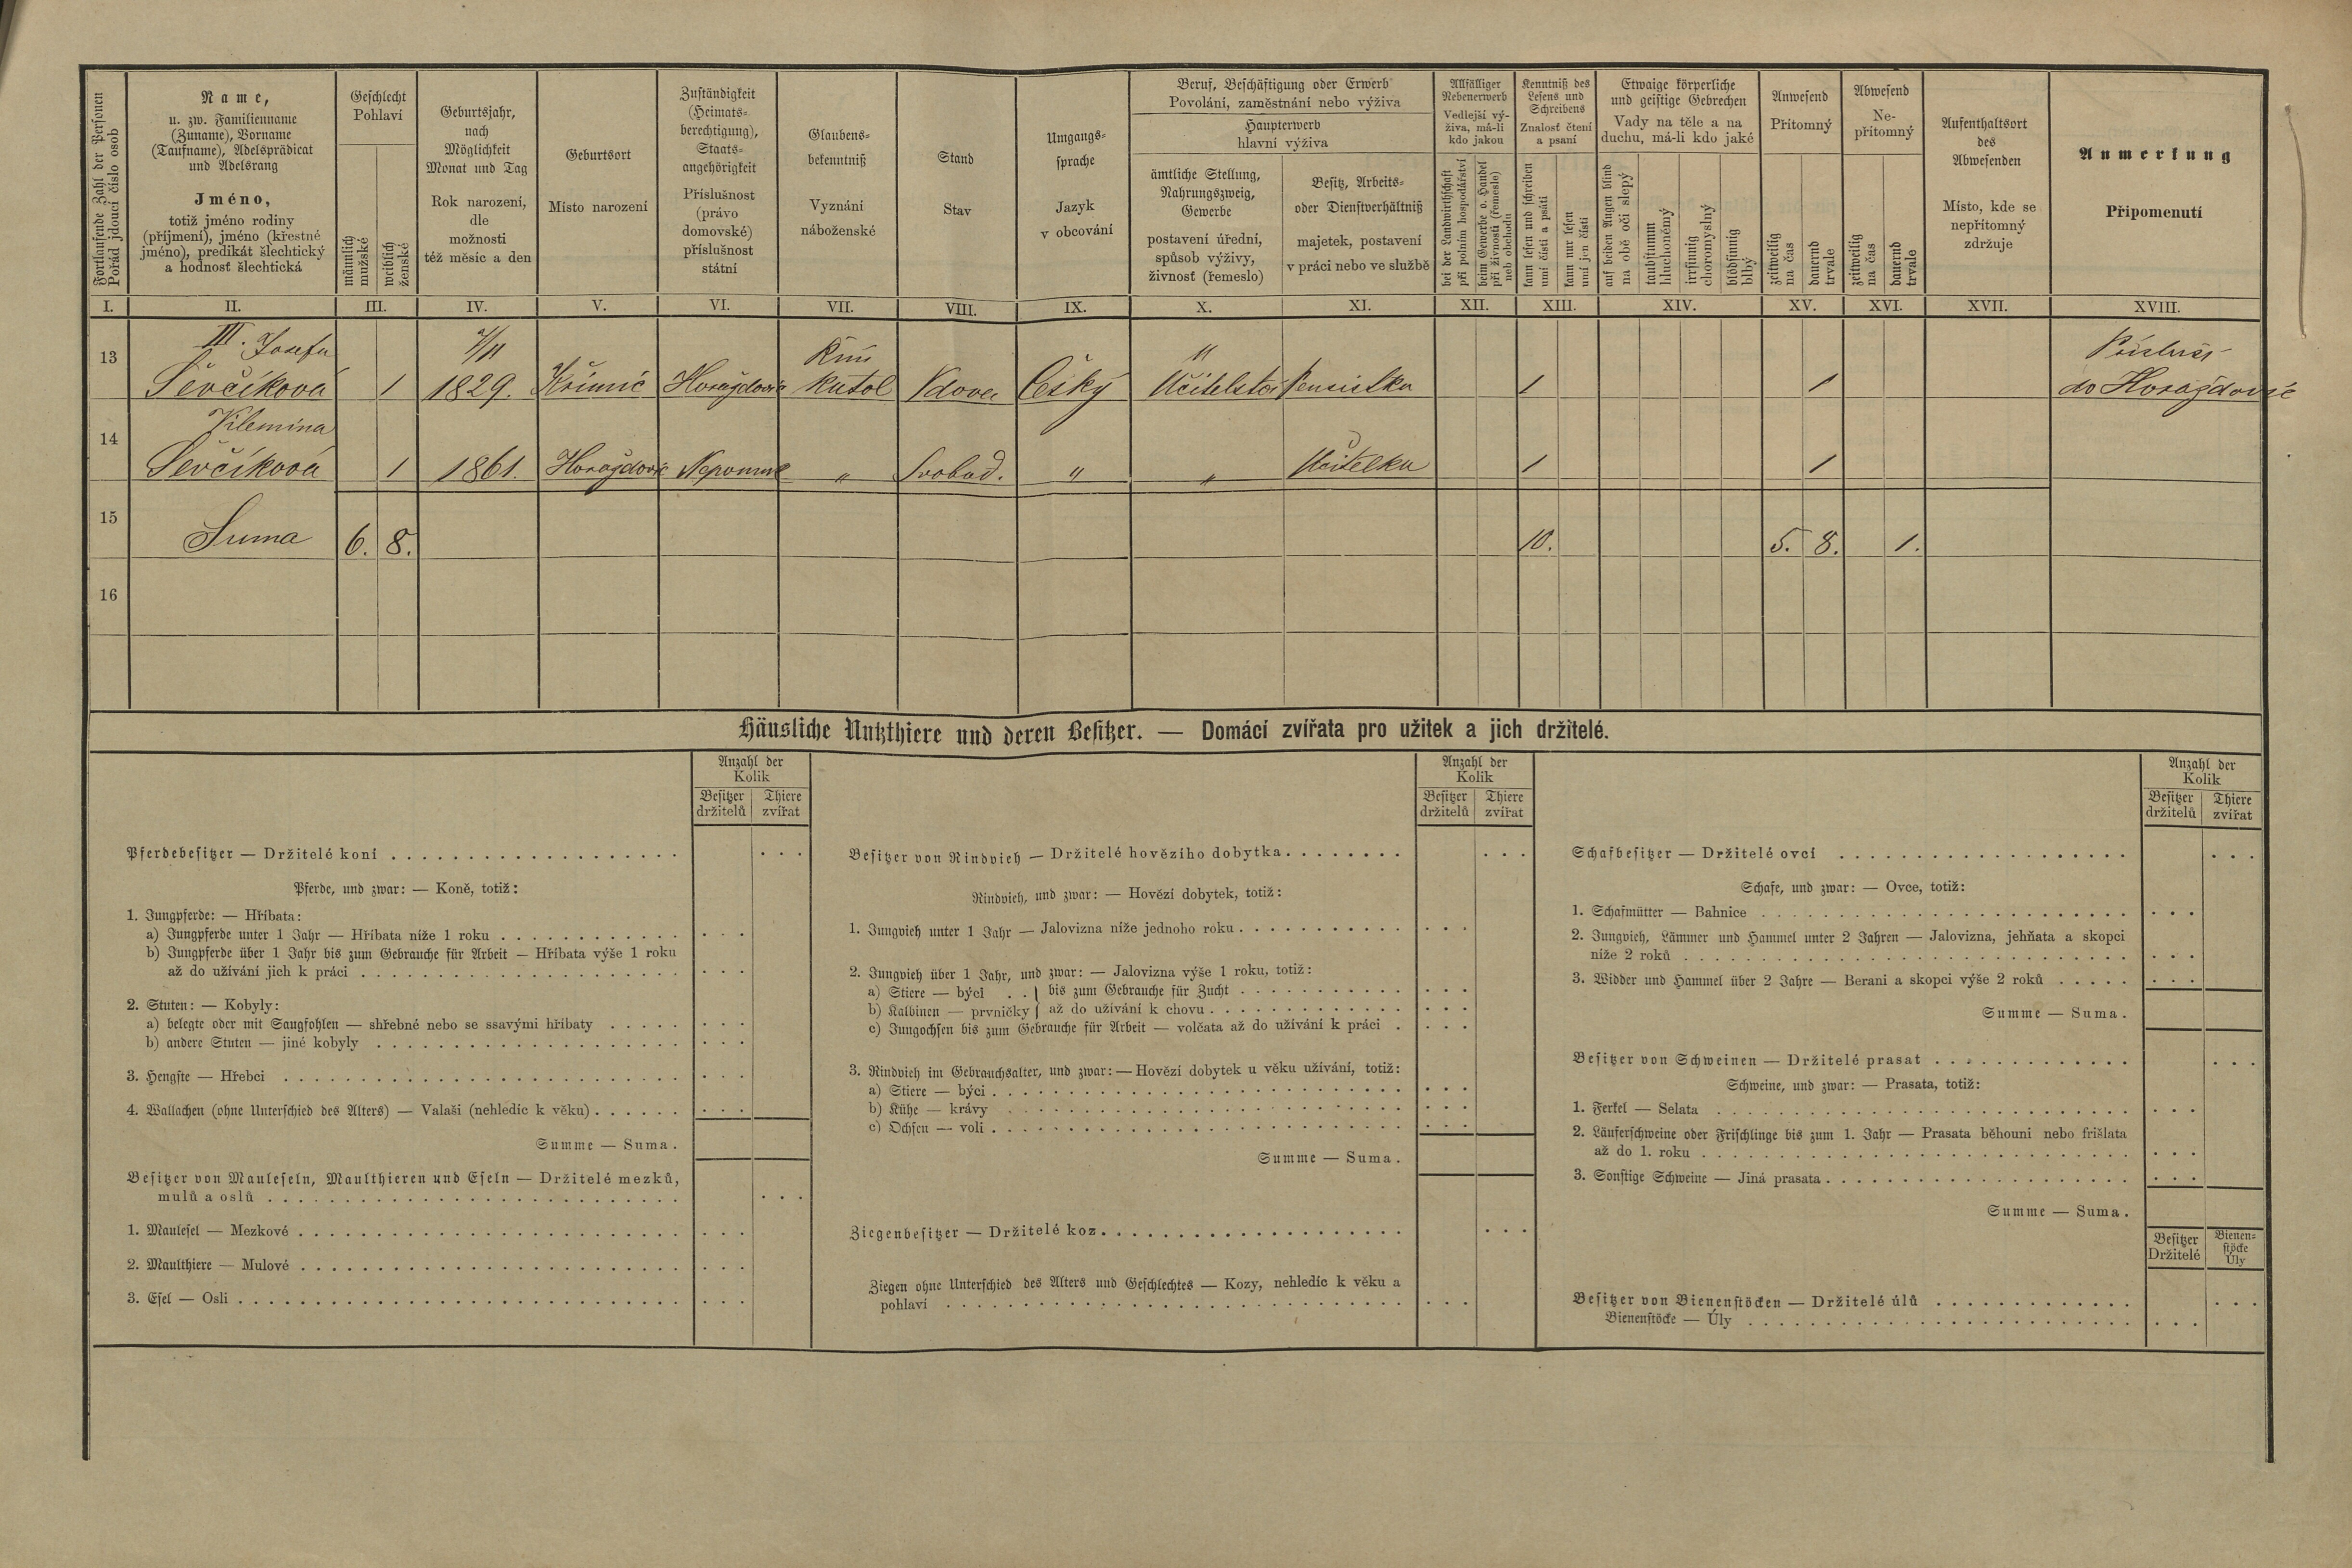 Fortlaufende Zahl der Personen
Pořád jdoucí číslo osob
Name,
u. zw. Familienname
(Zuname), Vorname
(Taufname), Adelsprädicat
und Adelsrang
Jméno,
totiž jméno rodiny
(příjmení), jméno (křestné
jméno), predikát šlechtický
a hodnost šlechtická
Geschlecht
Pohlaví
männlich
mužské
weiblich
ženské
Geburtsjahr,
nach
Möglichkeit
Monat und Tag
Rok narození,
dle
možnosti
též měsíc a den
Geburtsort
Místo narození
Zuständigkeit
(Heimats-
berechtigung),
Staats-
angehörigkeit
Příslušnost
(právo
domovské)
příslušnost
státní
Glaubens-
bekenntniß
Vyznání
náboženské
Stand
Stav
Umgangs-
sprache
Jazyk
v obcování
Beruf, Beschäftigung oder Erwerb
Povolání, zaměstnání nebo výživa
Haupterwerb
hlavní výživa
ämtliche Stellung,
Nahrungszweig,
Gewerbe
postavení úřední,
spůsob výživy,
živnost (řemeslo)
Besitz, Arbeits-
oder Dienstverhältniß
majetek, postavení
v práci nebo ve službě
Allfälliger
Nebenerwerb
Vedlejší vý-
živa, má-li
kdo jakou
bei der Landwirthschaft
při polním hospodářství
beim Gewerbe o. Handel
při živnosti (řemeslo)
neb obchodu
Kenntniß des
Lesens und
Schreibens
Znalost čtení
a psaní
kann lesen und schreiben
umí čísti a psáti
kann nur lesen
umí jen čísti
Etwaige körperliche
und geistige Gebrechen
Vady na těle a na
duchu, má-li kdo jaké
auf beiden Augen blind
na obě oči slepý
taubstumm
hluchoněmý
irrsinnig
choromyslný
blödsinnig
blbý
Anwesend
Přítomný
zeitweilig
na čas
dauernd
trvale
Abwesend
Ne-
přítomný
zeitweilig
na čas
dauernd
trvale
Aufenthaltsort
des
Abwesenden
Místo, kde se
nepřítomný
zdržuje
Anmerkung
Připomenutí
I. II. III. IV. V. VI. VII. VIII. IX. X. XI. XII. XIII. XIV. XV. XVI. XVII. XVIII.
III. Josefa Řím " Přísluší
13 Ševčíková 1 1829. Křimic Horažďovic katol Vdova Český Učitelství Pensistka 1 1 do Horažďovic
Klemina
14 Ševčíková 1 1861. Horažďovic Nepomuk " Svobod. " " Učitelka 1 1
15 Suma 6. 8. 10. 5. 8. 1.
16
Häusliche Nutzthiere und deren Besitzer. — Domácí zvířata pro užitek a jich držitelé.
Anzahl der
Kolik
Besitzer
držitelů
Thiere
zvířat
Pferdebesitzer — Držitelé koní
Pferde, und zwar: — Koně, totiž:
1. Jungpferde: — Hříbata:
a) Jungpferde unter 1 Jahr — Hříbata níže 1 roku
b) Jungpferde über 1 Jahr bis zum Gebrauche für Arbeit — Hříbata výše 1 roku
až do užívání jich k práci
2. Stuten: — Kobyly:
a) belegte oder mit Saugfohlen — shřebné nebo se ssavými hříbaty
b) andere Stuten — jiné kobyly
3. Hengste — Hřebci
4. Wallachen (ohne Unterschied des Alters) — Valaši (nehledíc k věku)
Summe — Suma.
Besitzer von Mauleseln, Maulthieren und Eseln — Držitelé mezků,
mulů a oslů
1. Maulesel — Mezkové
2. Maulthiere — Mulové
3. Esel — Osli
Anzahl der
Kolik
Besitzer
držitelů
Thiere
zvířat
Besitzer von Rindvieh — Držitelé hovězího dobytka
Rindvieh, und zwar: — Hovězí dobytek, totiž:
1. Jungvieh unter 1 Jahr — Jalovizna níže jednoho roku
2. Jungvieh über 1 Jahr, und zwar: — Jalovizna výše 1 roku, totiž:
a) Stiere — býci . . } bis zum Gebrauche für Zucht
b) Kalbinen — prvničky } až do užívání k chovu
c) Jungochsen bis zum Gebrauche für Arbeit — volčata až do užívání k práci
3. Rindvieh im Gebrauchsalter, und zwar: — Hovězí dobytek u věku užívání, totiž:
a) Stiere — býci
b) Kühe — krávy
c) Ochsen — voli
Summe — Suma.
Ziegenbesitzer — Držitelé koz
Ziegen ohne Unterschied des Alters und Geschlechtes — Kozy, nehledíc k věku a
pohlaví
Anzahl der
Kolik
Besitzer
držitelů
Thiere
zvířat
Schafbesitzer — Držitelé ovcí
Schafe, und zwar: — Ovce, totiž:
1. Schafmütter — Bahnice
2. Jungvieh, Lämmer und Hammel unter 2 Jahren — Jalovizna, jehňata a skopci
níže 2 roků
3. Widder und Hammel über 2 Jahre — Berani a skopci výše 2 roků
Summe — Suma.
Besitzer von Schweinen — Držitelé prasat
Schweine, und zwar: — Prasata, totiž:
1. Ferkel — Selata
2. Läuferschweine oder Frischlinge bis zum 1. Jahr — Prasata běhouni nebo frišlata
až do 1. roku
3. Sonstige Schweine — Jiná prasata
Summe — Suma.
Besitzer
Držitelé
Bienen-
stöcke
Úly
Besitzer von Bienenstöcken — Držitelé úlů
Bienenstöcke — Úly